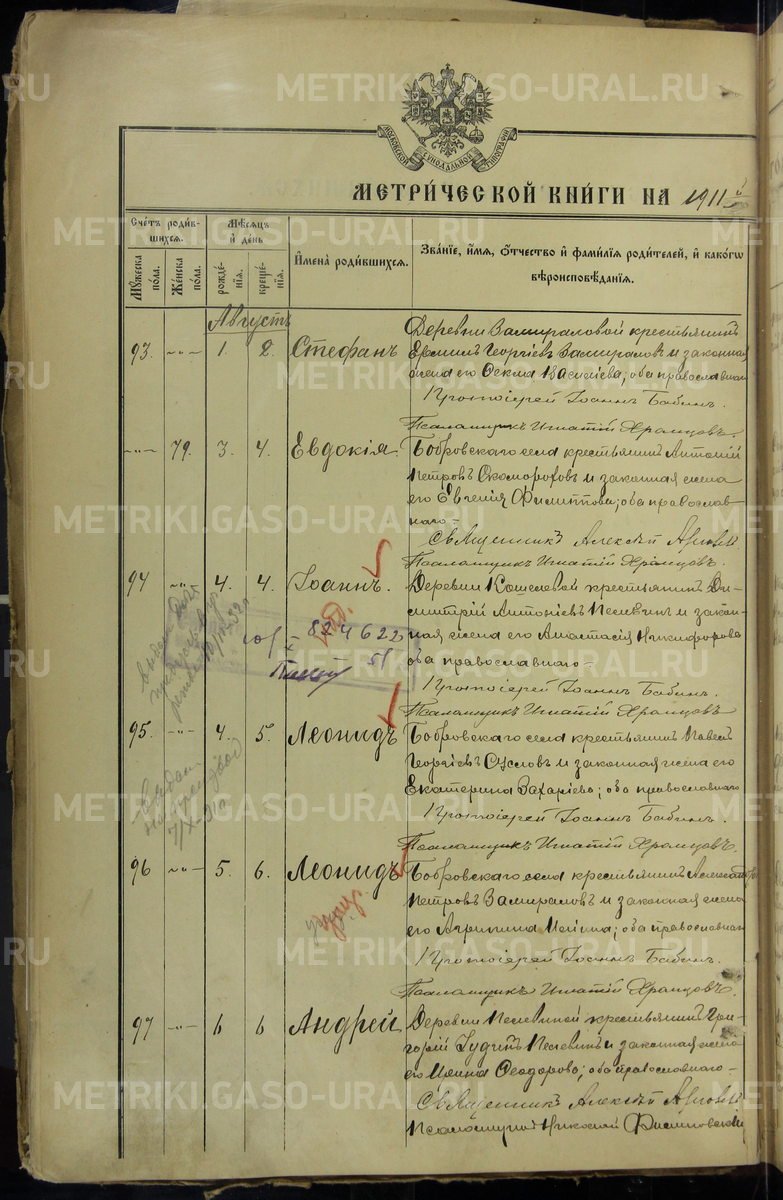 METRIKI.GASO-URAL.RU
МОСКОВСКОЙ СѴНОДАЛЬНОЙ ТИПОГРАФІИ
МЕТРИ́ЧЕСКОЙ КНИ́ГИ НА 1911
Сче́тъ роди́вшихся.
Мѣ́сяцъ и҆ де́нь
Мꙋ́жеска по́ла.
Же́нска по́ла.
рожде́нїѧ.
креще́нїѧ.
И҆мена̀ роди́вшихся.
Зва́нїе, и҆́мѧ, ѻ҆́тчество и҆ фами́лїѧ роди́телей, и҆ како́гѡ
вѣроисповѣ́данїѧ.
Августъ
93. -"- 1. 2. Стефанъ
Деревни Замираловой крестьянинъ
Георгіевъ Замираловъ и законная
жена его Фекла; оба православнаго
Протоіерей Іоаннъ Бабинъ.
Псаломщикъ Игнатій Храмцовъ.
-"- 79. 3. 4. Евдокія.
Бобровскаго села крестьянинъ Антоній
Петровъ Скоморохов и законная жена
его Евгенія Филиппова; оба православ-
наго -
Священникъ Алексѣй
Псаломщикъ Игнатій Храмцовъ.
94 -"- 4. 4. Іоаннъ.
Деревни Кошелевой крестьянинъ Ди-
митрій Антоніевъ Пелевинъ и закон-
ная жена его Анастасія Никифорова
оба православнаго -
824622
51
Протоіерей Іоаннъ Бабинъ.
Псаломщикъ Игнатій Храмцовъ
95. -"- 4. 5. Леонидъ
Бобровскаго села крестьянинъ Павелъ
Георгіевъ Сусловъ и законная жена его
Екатерина Захаріева; оба православнаго
Протоіерей Іоаннъ Бабинъ.
Псаломщикъ Игнатій Храмцовъ.
96 -"- 5. 6. Леонидъ
Бобровскаго села крестьянинъ
Петровъ Замираловъ и законная жена
его Агрипина; оба православнаго
Протоіерей Іоаннъ Бабинъ.
Псаломщикъ Игнатій Храмцовъ.
97 -"- 6 6 Андрей
Деревни Пелевиной крестьянинъ Гри-
горій Іудинъ Пелевинъ и законная жена
его Феодорова; оба православнаго -
Священникъ Алексѣй
Псаломщикъ Николай